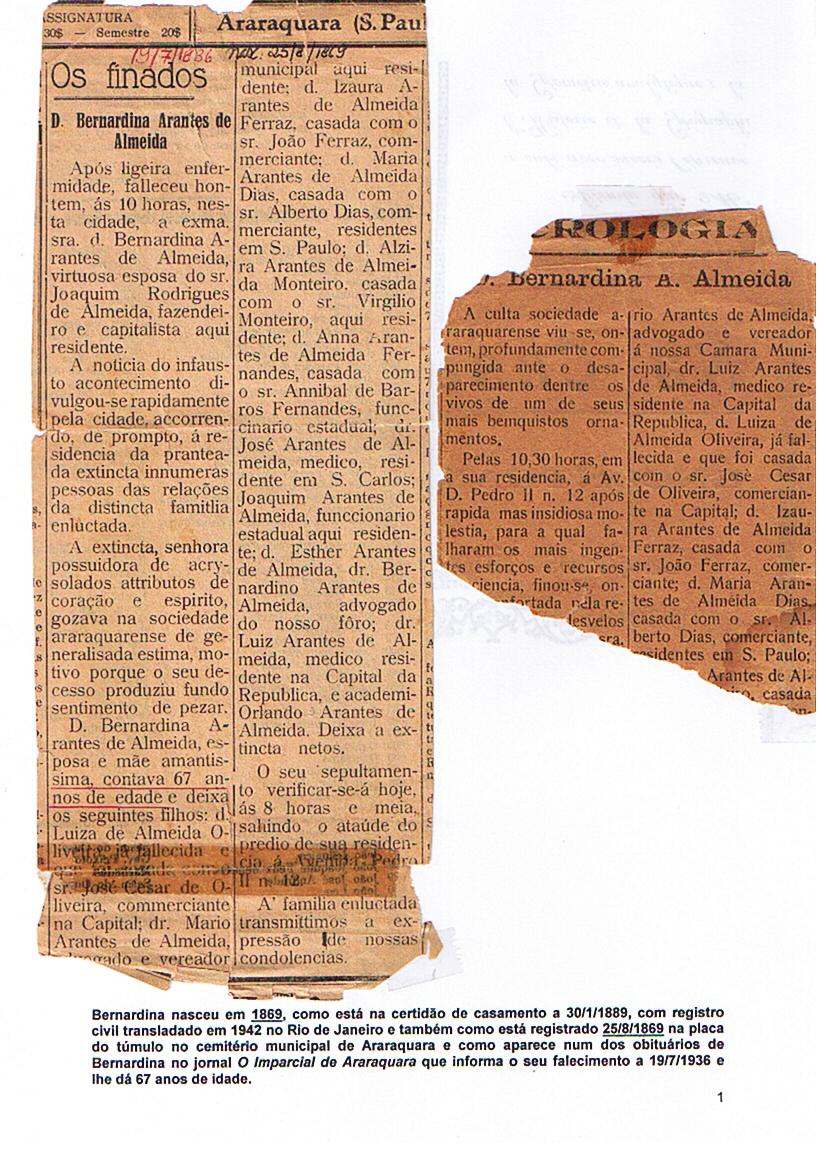 SSIGNATURA
30$ — Semestre 20$
Araraquara (S. Pau
19/7/1936 nasc. 25/8/1869
Os finados
D. Bernardina Arantes de
Almeida
Após ligeira enfer-
midade, falleceu hon-
tem, ás 10 horas, nes-
ta cidade, a exma.
sra. d. Bernardina A-
rantes de Almeida,
virtuosa esposa do sr.
Joaquim Rodrigues
de Almeida, fazendei-
ro e capitalista aqui
residente.
A noticia do infaus-
to acontecimento di-
vulgou-se rapidamente
pela cidade, accorren-
do, de prompto, á re-
sidencia da prantea-
da extincta innumeras
pessoas das relações
da distincta famitlia
enluctada.
A extincta, senhora
possuidora de acry-
solados attributos de
coração e espirito,
gozava na sociedade
araraquarense de ge-
neralisada estima, mo-
tivo porque o seu de-
cesso produziu fundo
sentimento de pezar.
D. Bernardina A-
rantes de Almeida, es-
posa e mãe amantis-
sima, contava 67 an-
nos de edade e deixa
os seguintes filhos: d.
Luiza de Almeida O-
liveira já fallecida e
que foi casada com
sr. José Cesar de O-
liveira, commerciante
na Capital; dr. Mario
Arantes de Almeida,
advogado e vereador
municipal aqui resi-
dente; d. Izaura A-
rantes de Almeida
Ferraz, casada com o
sr. João Ferraz, com-
merciante; d. Maria
Arantes de Almeida
Dias, casada com o
sr. Alberto Dias, com-
merciante, residentes
em S. Paulo; d. Alzi-
ra Arantes de Almei-
da Monteiro. casada
com o sr. Virgilio
Monteiro, aqui resi-
dente; d. Anna Aran-
tes de Almeida Fer-
nandes, casada com
o sr. Annibal de Bar-
ros Fernandes, func-
cinario estadual; dr.
José Arantes de Al-
meida, medico, resi-
dente em S. Carlos;
Joaquim Arantes de
Almeida, funccionario
estadual aqui residen-
te; d. Esther Arantes
de Almeida, dr. Ber-
nardino Arantes de
Almeida, advogado
do nosso fôro; dr.
Luiz Arantes de Al-
meida, medico resi-
dente na Capital da
Republica, e academi-
Orlando Arantes de
Almeida. Deixa a ex-
tincta netos.
O seu sepultamen-
to verificar-se-á hoje,
ás 8 horas e meia,
sahindo o ataúde do
predio de sua residen-
cia á Avenida Pedro
II n. 12.
A' familia enluctada
transmittimos a ex-
pressão de nossas
condolencias.
CROLOGIA
D. Bernardina A. Almeida
A culta sociedade a-
raraquarense viu-se, on-
tem, profundamente com-
pungida ante o desa-
parecimento dentre os
vivos de um de seus
mais bemquistos orna-
mentos.
Pelas 10,30 horas, em
a sua residencia, á Av.
D. Pedro II n. 12 após
rapida mas insidiosa mo-
lestia, para a qual fa-
lharam os mais ingen-
tes esforços e recursos
ciencia, finou-se, on-
nfortada pela re-
desvelos
sra.
rio Arantes de Almeida,
advogado e vereador
á nossa Camara Muni-
cipal, dr. Luiz Arantes
de Almeida, medico re-
sidente na Capital da
Republica, d. Luiza de
Almeida Oliveira, já fal-
lecida e que foi casada
com o sr. José Cesar
de Oliveira, comercian-
te na Capital; d. Izau-
ra Arantes de Almeida
Ferraz, casada com o
sr. João Ferraz, comer-
ciante; d. Maria Aran-
tes de Almeida Dias,
casada com o sr. Al-
berto Dias, comerciante,
residentes em S. Paulo;
Arantes de Al-
casada
Bernardina nasceu em 1869, como está na certidão de casamento a 30/1/1889, com registro
civil transladado em 1942 no Rio de Janeiro e também como está registrado 25/8/1869 na placa
do túmulo no cemitério municipal de Araraquara e como aparece num dos obituários de
Bernardina no jornal O Imparcial de Araraquara que informa o seu falecimento a 19/7/1936 e
lhe dá 67 anos de idade.
1